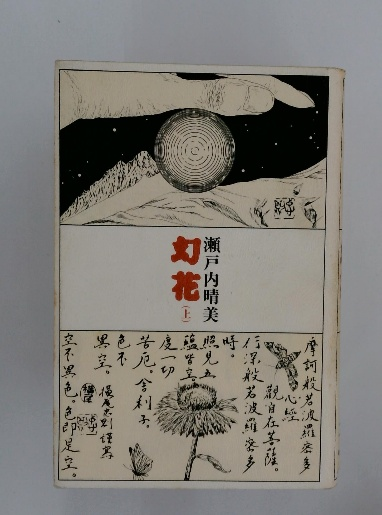 瀬戸内晴美
幻花
(上)
摩訶般若波羅蜜多
心経
観自在菩薩。
行深般若波羅蜜多
時。
照見五
蘊皆空
度一切
苦厄。舎利子
色不
異空。
横尾忠則謹写
空不異色。色即是空。